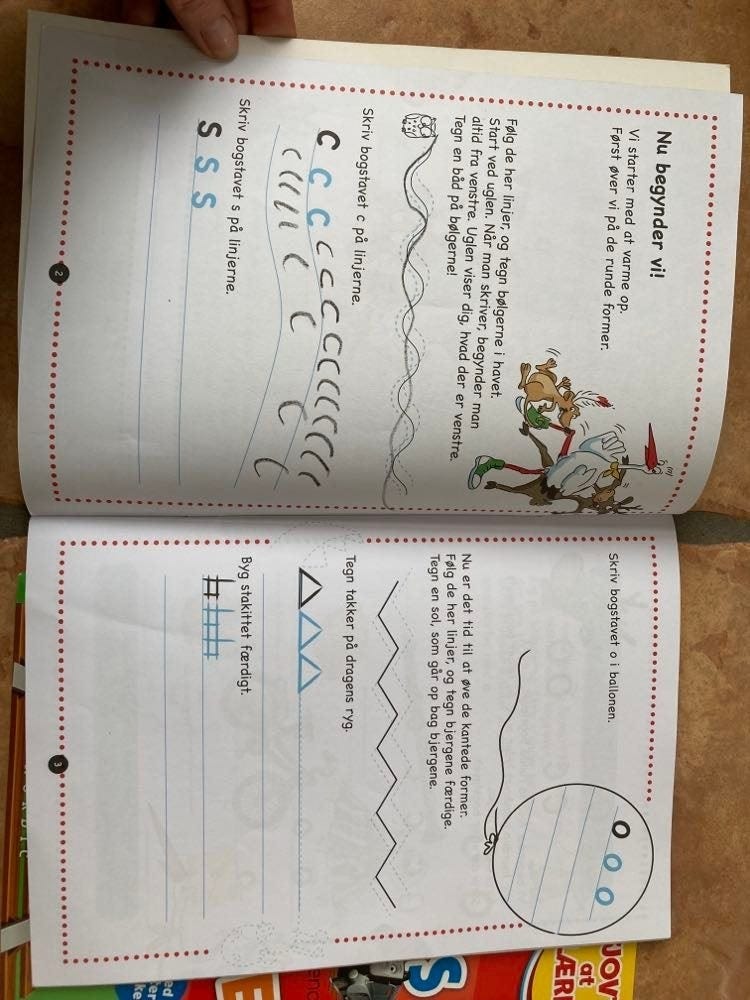 Nu begynder vi!
Vi starter med at varme op.
Først øver vi på de runde former.
Følg de her linjer, og tegn bølgerne i havet.
Start ved uglen. Når man skriver, begynder man
altid fra venstre. Uglen viser dig, hvad der er venstre.
Tegn en båd på bølgerne!
Skriv bogstavet c på linjerne.
c c c c c c c c c c c c c c
c c c c c c c c c
Skriv bogstavet s på linjerne.
s s s
2
Skriv bogstavet o i ballonen.
o o o
Nu er det tid til at øve de kantede former.
Følg de her linjer, og tegn bjergene færdige.
Tegn en sol, som går op bag bjergene.
Tegn takker på dragens ryg.
Byg stakittet færdigt.
3
JOV
at
LÆR
S
E